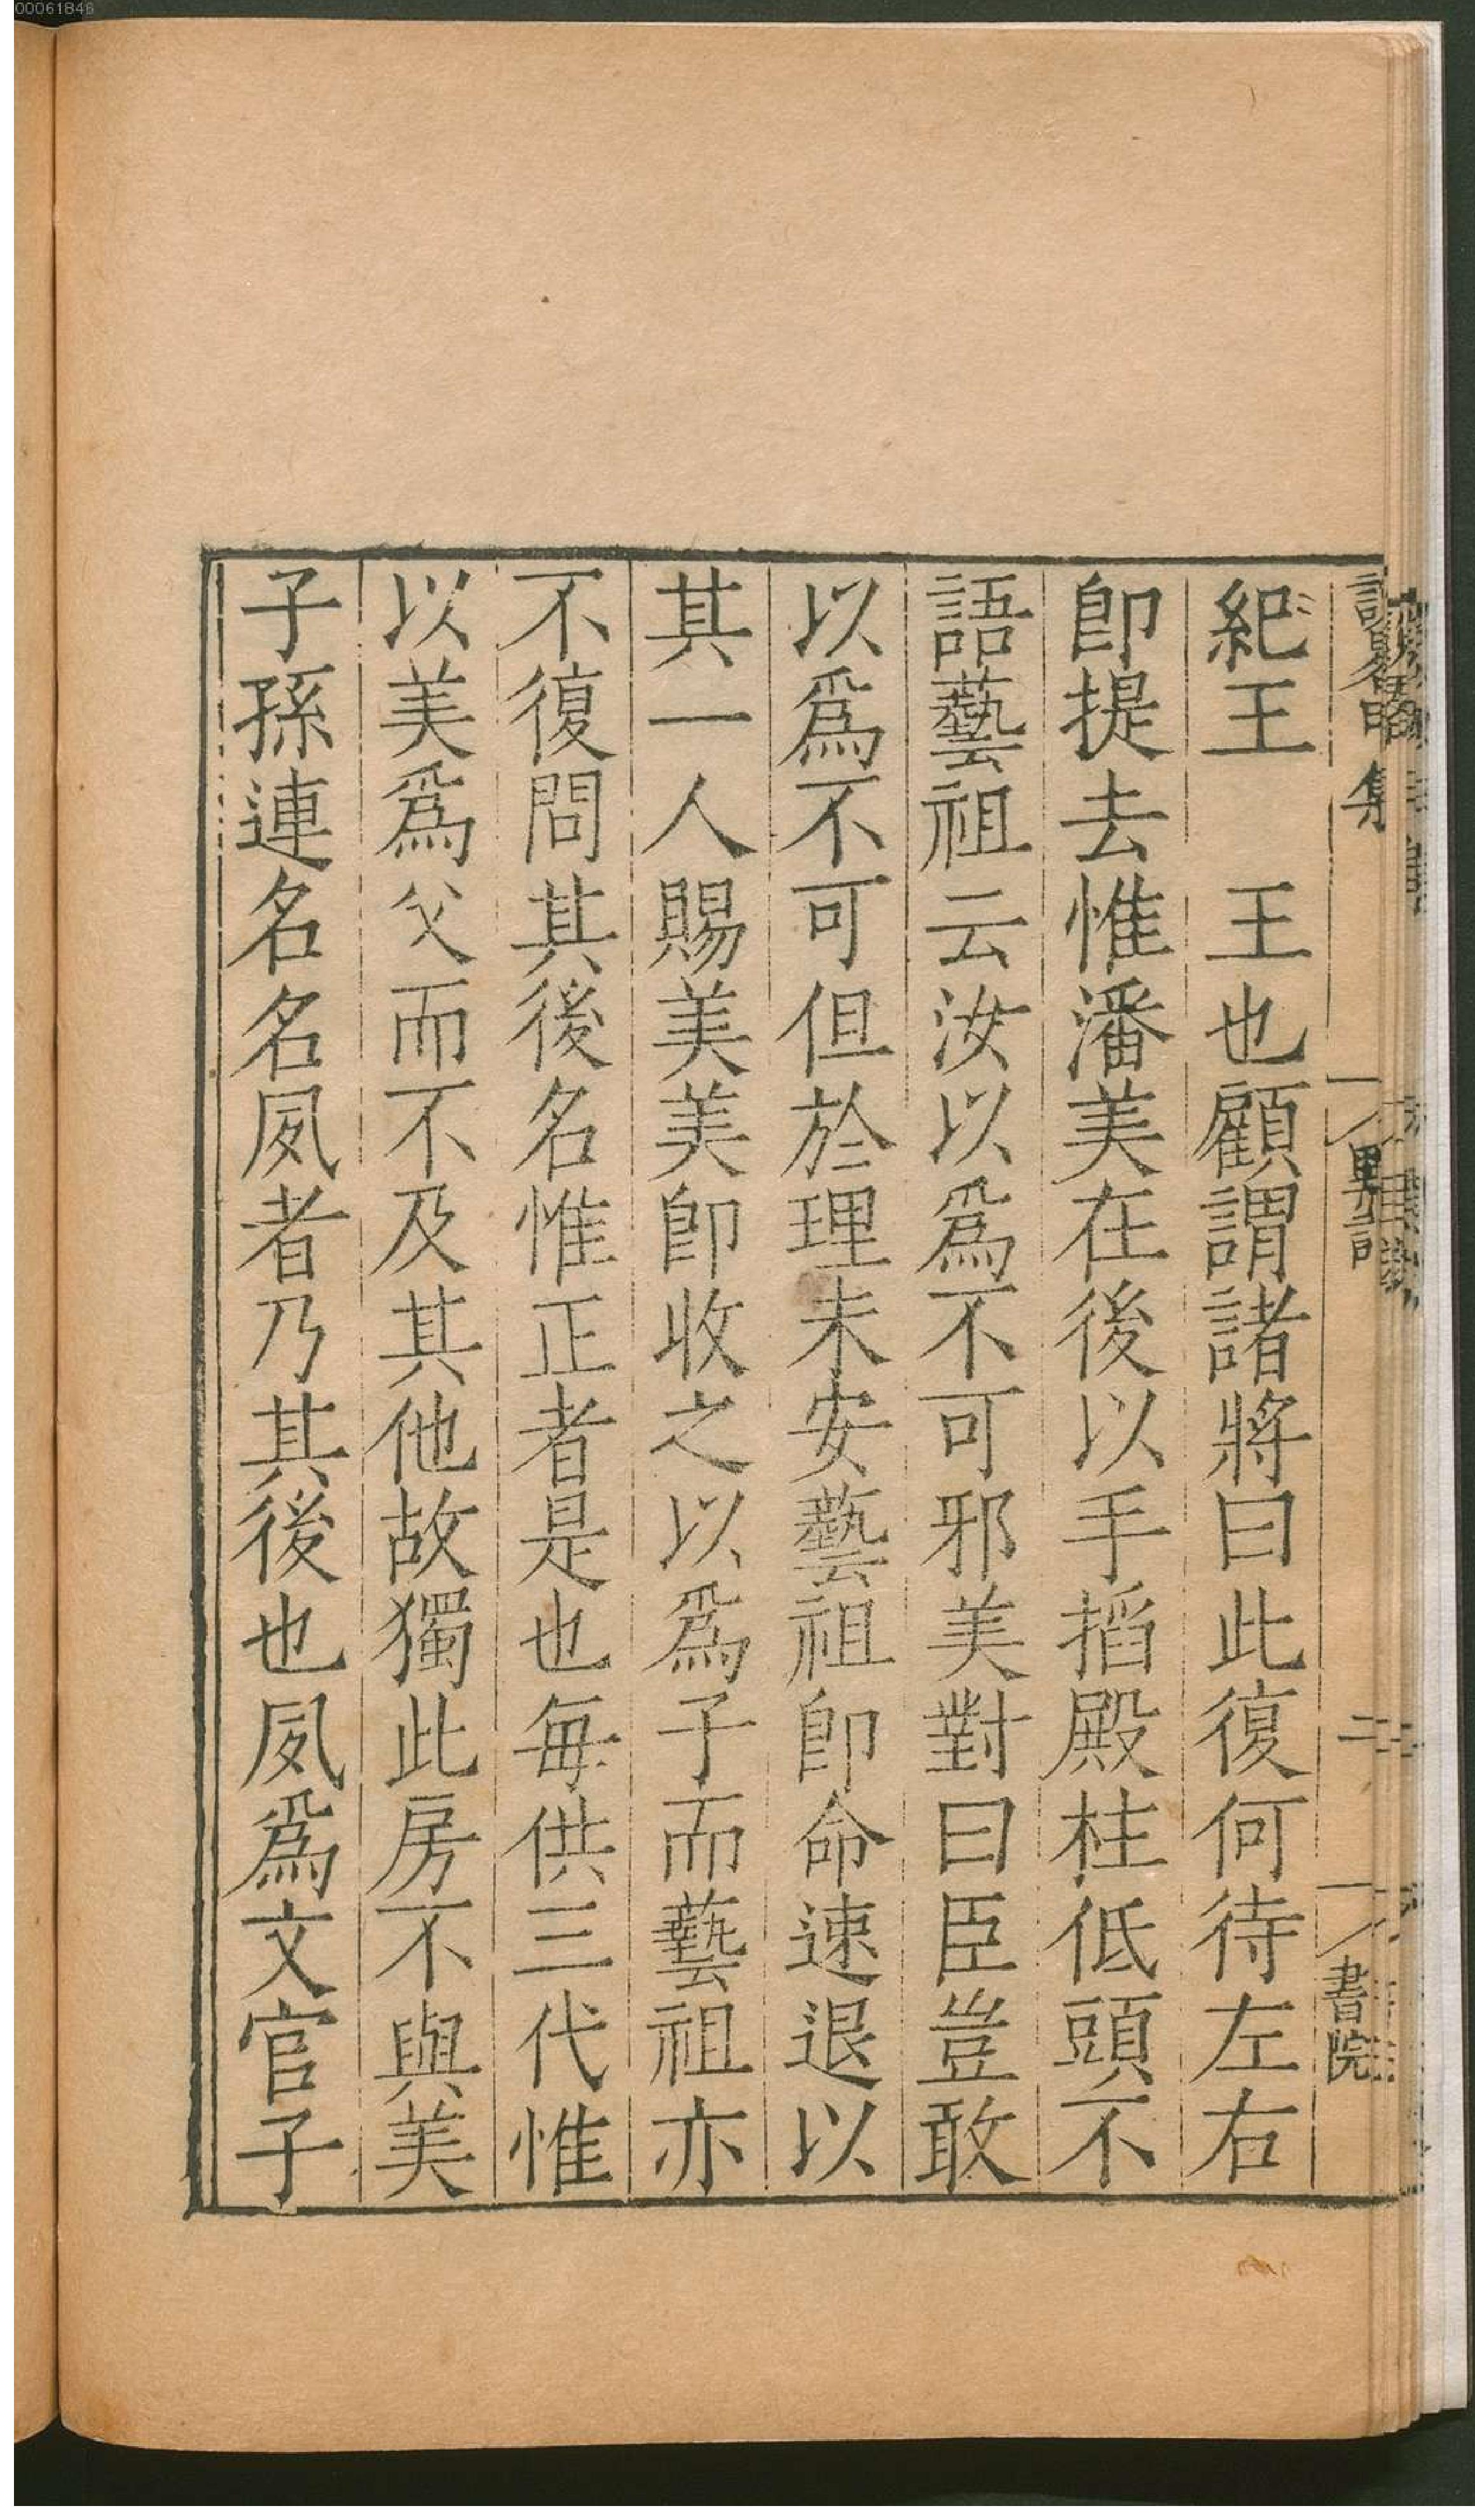 00061846
紀王　王也顧謂諸將曰此復何待左右
卽提去惟潘美在後以手搯殿柱低頭不
語藝祖云汝以爲不可邪美對曰臣豈敢
以爲不可但於理未安藝祖卽命速退以
其一人賜美美卽收之以爲子而藝祖亦
不復問其後名惟正者是也每供三代惟
以美爲父而不及其他故獨此房不與美
子孫連名名夙者乃其後也夙爲文官子
集
二
書院